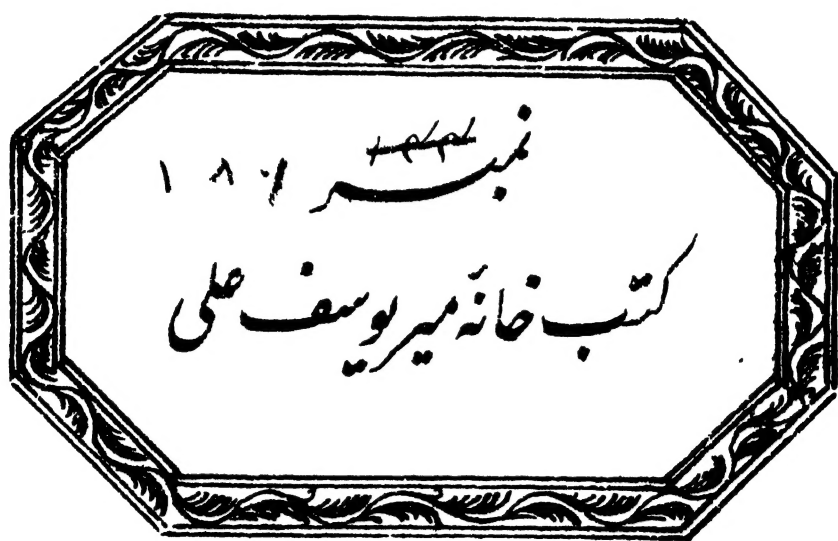 نمبر ۱۸۰۱
کتب خانۂ میر یوسف علی